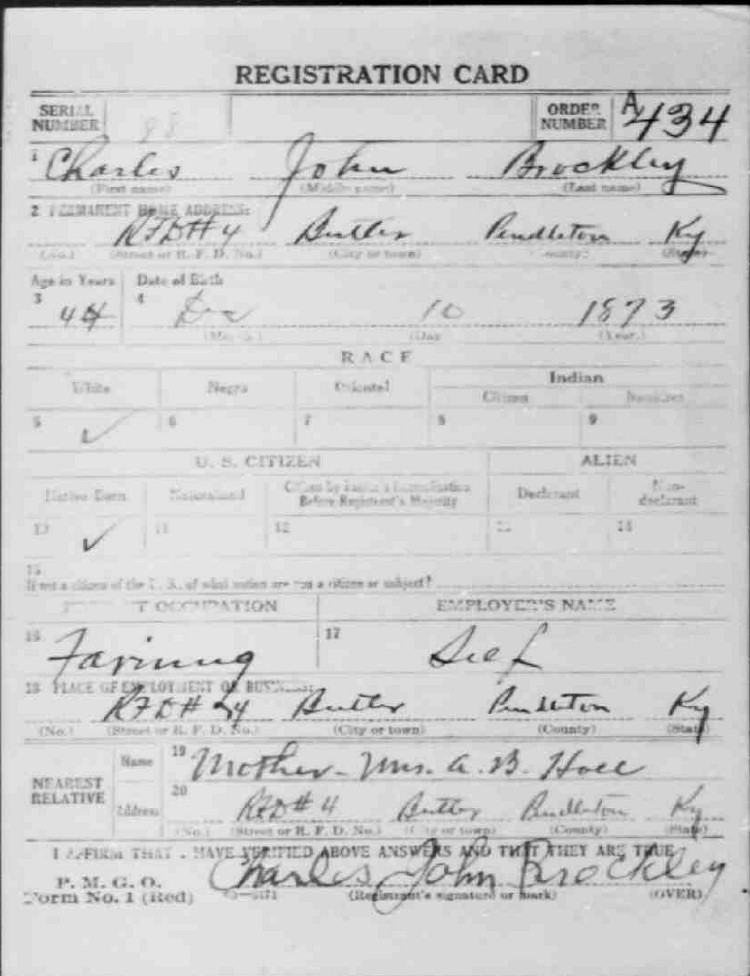 REGISTRATION CARD
SERIAL NUMBER 88 ORDER NUMBER A 434
1 Charles John Brockley
(First name) (Middle name) (Last name)
2 PERMANENT HOME ADDRESS:
RFD# 4 Butler Pendleton Ky
(No.) (Street or R. F. D. No.) (City or town) (County) (State)
Age in Years Date of Birth
3 44 4 Dec 10 1873
(Month.) (Day) (Year.)
RACE
White Negro Oriental Indian
Citizen
5 ✓ 6 7 8 9
U. S. CITIZEN ALIEN
Native Born Naturalized Citizen by Father's Naturalization Before Registrant's Majority Declarant Non-declarant
10 ✓ 11 12 13 14
15
If not a citizen of the U. S., of what nation are you a citizen or subject?
OCCUPATION EMPLOYER'S NAME
16 Farming 17 Self
18 PLACE OF EMPLOYMENT OR BUSINESS:
RFD# 4 Butler Pendleton Ky
(No.) (Street or R. F. D. No.) (City or town) (County) (State)
NEAREST RELATIVE
Name 19 Mother - Mrs. A. B.
Address 20 RFD# 4 Butler Pendleton Ky
(No.) (Street or R. F. D. No.) (City or town) (County) (State)
I AFFIRM THAT I HAVE VERIFIED ABOVE ANSWERS AND THAT THEY ARE TRUE
P. M. G. O.
Form No. 1 (Red) Charles John Brockley
(Registrant's signature or mark) (OVER)